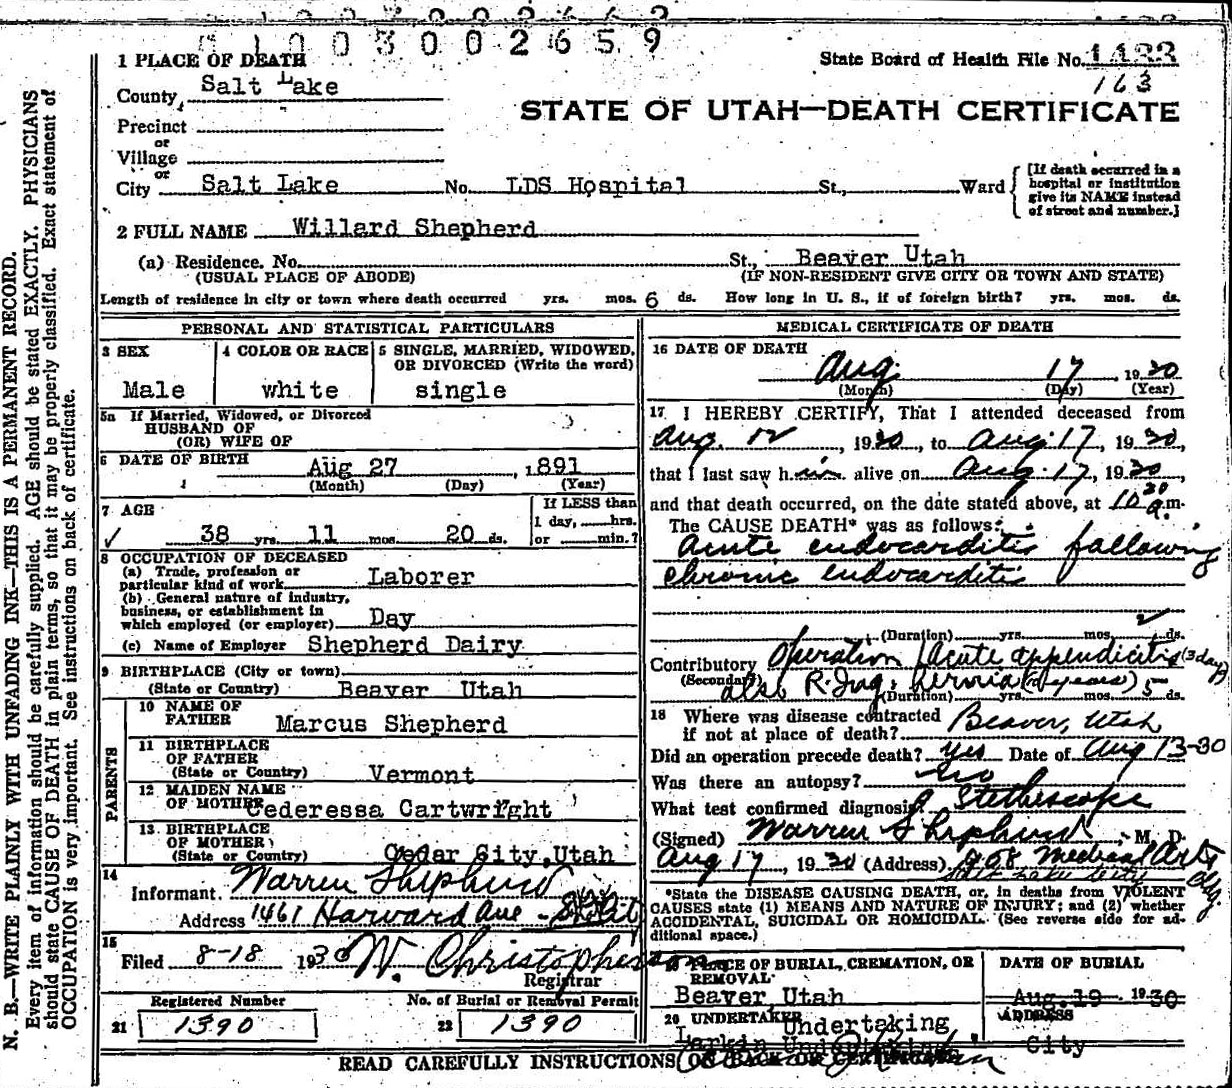 0 1 0 0 3 0 0 2 6 5 9
1 PLACE OF DEATH State Board of Health File No. 1433
County Salt Lake 163
STATE OF UTAH—DEATH CERTIFICATE
Precinct
or
Village
or
City Salt Lake No. LDS Hospital St., Ward [If death occurred in a hospital or institution give its NAME instead of street and number.]
2 FULL NAME Willard Shepherd
(a) Residence. No. St., Beaver Utah
(USUAL PLACE OF ABODE) (IF NON-RESIDENT GIVE CITY OR TOWN AND STATE)
Length of residence in city or town where death occurred yrs. mos. 6 ds. How long in U. S., if of foreign birth? yrs. mos. ds.
PERSONAL AND STATISTICAL PARTICULARS
3 SEX 4 COLOR OR RACE 5 SINGLE, MARRIED, WIDOWED, OR DIVORCED (Write the word)
Male white single
5a If Married, Widowed, or Divorced
HUSBAND OF
(OR) WIFE OF
6 DATE OF BIRTH Aug 27, 1891
(Month) (Day) (Year)
7 AGE If LESS than
1 day, hrs.
38 yrs. 11 mos. 20 ds. or min.?
8 OCCUPATION OF DECEASED
(a) Trade, profession or
particular kind of work Laborer
(b) General nature of industry,
business, or establishment in
which employed (or employer) Day
(c) Name of Employer Shepherd Dairy
9 BIRTHPLACE (City or town)
(State or Country) Beaver Utah
PARENTS
10 NAME OF
FATHER Marcus Shepherd
11 BIRTHPLACE
OF FATHER
(State or Country) Vermont
12 MAIDEN NAME
OF MOTHER Cederessa Cartwright
13 BIRTHPLACE
OF MOTHER
(State or Country) Cedar City, Utah
14
Informant. Warren Shepherd
Address 1461 Harvard Ave -
15
Filed 8-18 1930 W. Christopherson
Registrar
Registered Number No. of Burial or Removal Permit
21 1390 22 1390
MEDICAL CERTIFICATE OF DEATH
16 DATE OF DEATH
Aug. 17, 1930
(Month) (Day) (Year)
17 I HEREBY CERTIFY, That I attended deceased from
Aug. 12, 1930, to Aug. 17, 1930,
that I last saw him alive on Aug. 17, 1930
and that death occurred, on the date stated above, at 10 30 a.m.
The CAUSE DEATH* was as follows:
Acute endocarditis following
chronic endocarditis
(Duration) yrs. mos. ds.
Contributory Operation Acute appendicitis (3 day)
(Secondary) also R. Ing. Hernia
(Duration) yrs. mos. 5 ds.
18 Where was disease contracted
if not at place of death? Beaver, Utah
Did an operation precede death? yes Date of Aug 13-30
Was there an autopsy? No
What test confirmed diagnosis? Stethescope
(Signed) Warren Shepherd, M. D.
Aug 17, 1930 (Address) Medical Arts Bldg.
Salt Lake City
*State the DISEASE CAUSING DEATH, or, in deaths from VIOLENT
CAUSES state (1) MEANS AND NATURE OF INJURY; and (2) whether
ACCIDENTAL, SUICIDAL OR HOMICIDAL. (See reverse side for ad-
ditional space.)
PLACE OF BURIAL, CREMATION, OR REMOVAL DATE OF BURIAL
Beaver, Utah Aug. 19 1930
20 UNDERTAKER Undertaking ADDRESS
Larkin Undertaking City
READ CAREFULLY INSTRUCTIONS ON BACK OF CERTIFICATE
N. B.—WRITE PLAINLY WITH UNFADING INK—THIS IS A PERMANENT RECORD.
Every item of information should be carefully supplied. AGE should be stated EXACTLY. PHYSICIANS
should state CAUSE OF DEATH in plain terms, so that it may be properly classified. Exact statement of
OCCUPATION is very important. See instructions on back of certificate.